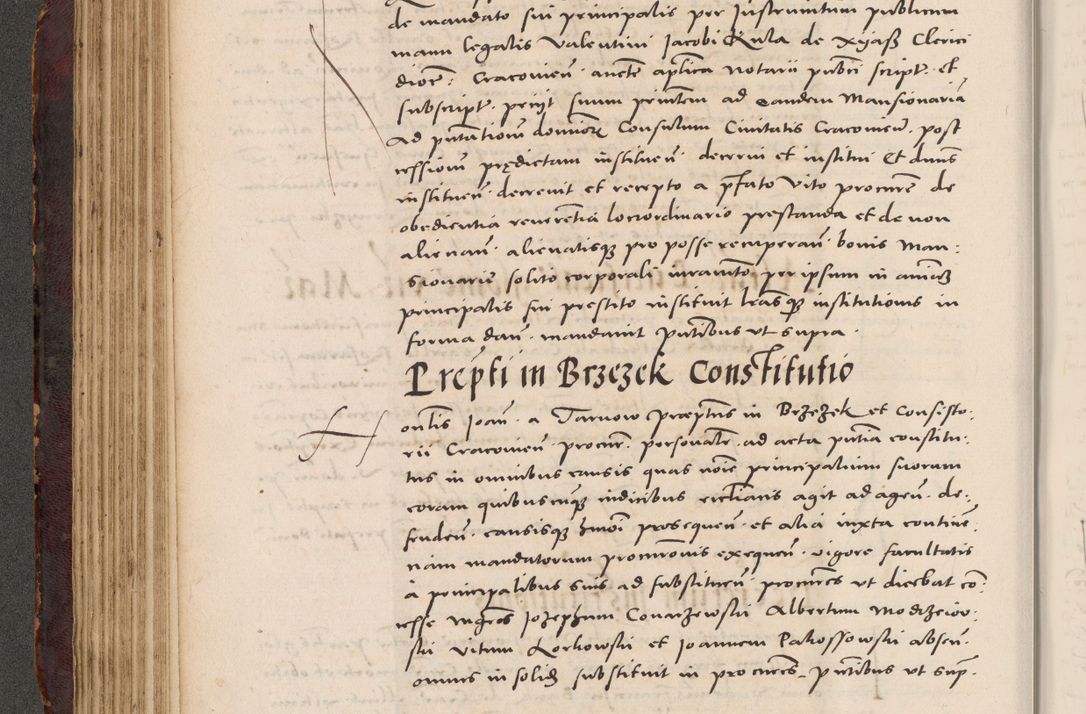 de mandato sui principalis per Instrumentum publicum
manu legalis Valentini Jacobi Kula de Xyasz Clerici
dioc: Cracovien. aucte aplica Notarii publici script. et
subscript. petijt suum principalem ad eandem Mansionariã
Ad putationem dominor Consulum Civitatis Cracovien. post
cessionem prędictam institueñ decerni et institui Et dnus
instituen. decrevit et recepto a pfato Vito procure de
obedientia reverentia loci ordinario prestanda et de non
alienan. alienatisq pro posse recuperan. bonis Man:
sionariis solito corporali iuramto per ipsum in animã
principalis sui prestito instituit lrasq institutionis in
forma dan. mandavit Pntibus ut supra.
Prepti in Brzezek Constitutio
onblis Joan. a Tarnow Præptus in Brzezek et Consisto:
rii Cracovien. procur. personalr. ad acta pntia constitu:
tus in omnibus causis quas noie principalium suorum
coram quibuscunq iudicibus eccliacis agit ad agen. de:
fenden. causisq hmoi prosequen. et alia iuxta contine:
niam mandatorum procurionis exequen. vigore facultatis
à principalibus suis ad substituen. procures ut dicebat cõ:
cesse mgros Jozephum Conarzewski Albertum Modrzeiow:
ski Vitum Lorkowski et Joannem Pakossowski absen.
omnes in solid substituit in procures. Pntibus ut sup.